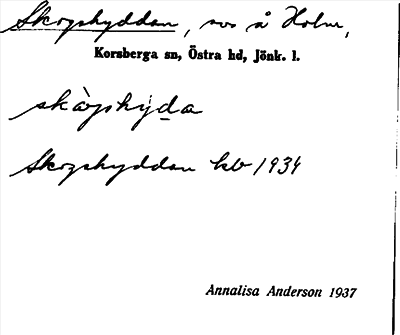 Skogshyddan, sos å Holm,
Korsberga sn, Östra hd, Jönk. l.
skògshy̱da
Skogshyddan kb 1934
Annalisa Anderson 1937